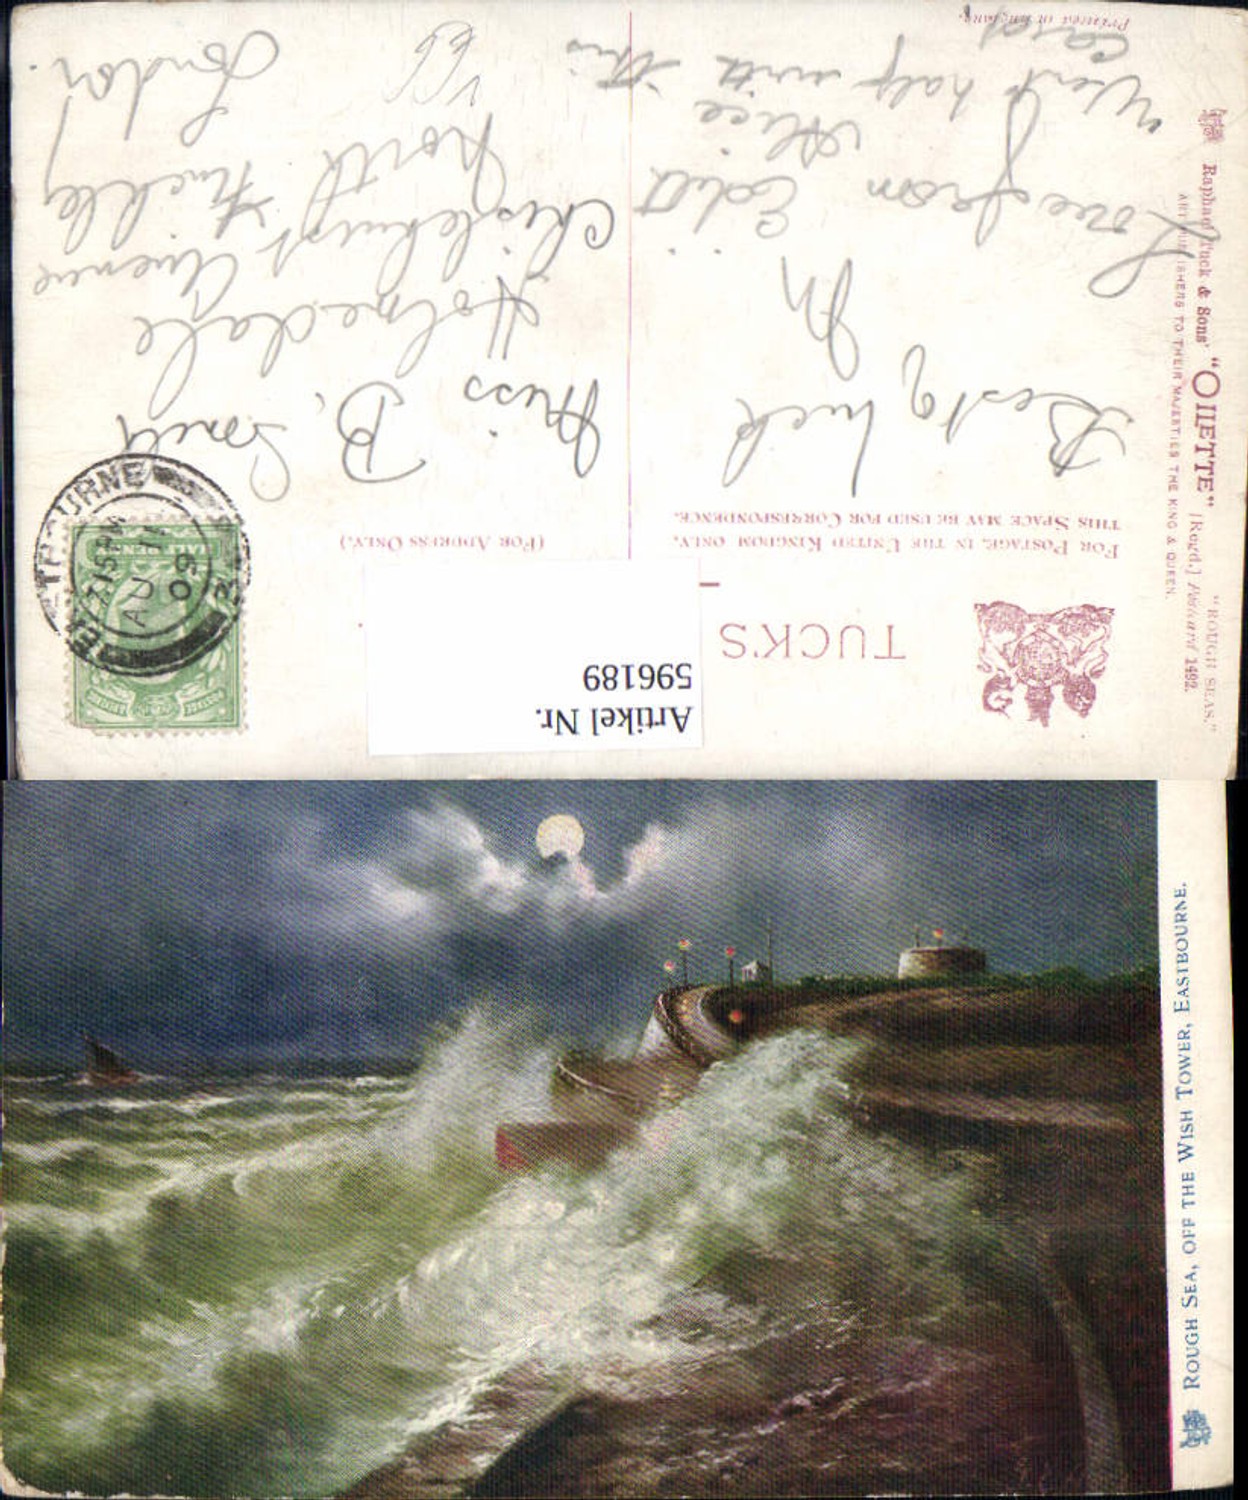 "ROUGH SEAS."
Raphael Tuck & Sons' "OILETTE" [Regd.] Postcard 1492.
ART PUBLISHERS TO THEIR MAJESTIES THE KING & QUEEN.
TUCK'S
FOR POSTAGE IN THE UNITED KINGDOM ONLY,
THIS SPACE MAY BE USED FOR CORRESPONDENCE.
(FOR ADDRESS ONLY.)
Artikel Nr.
596189
Best of luck
Love from Edith
Alice
Went half with this
card
Printed in England.
Miss B.
Holmedale
Chislehurst Avenue
North Finchley
London.
EASTBOURNE
7.15 PM
AU 11
09
HALFPENNY
POSTAGE
ROUGH SEA, OFF THE WISH TOWER, EASTBOURNE.